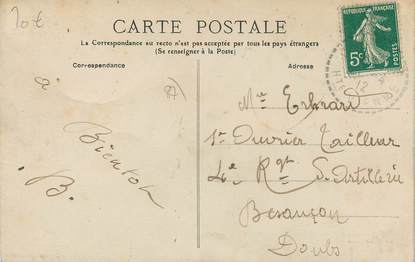 20€
CARTE POSTALE
La Correspondance au recto n'est pas acceptée par tous les pays étrangers
(Se renseigner à la Poste)
Correspondance
Adresse
RÉPUBLIQUE FRANÇAISE
5c
POSTES
à
Bientôt
B.
Mr Erhard
1er Ouvrier Tailleur
4e Rgt d'Artillerie
Besançon
Doubs